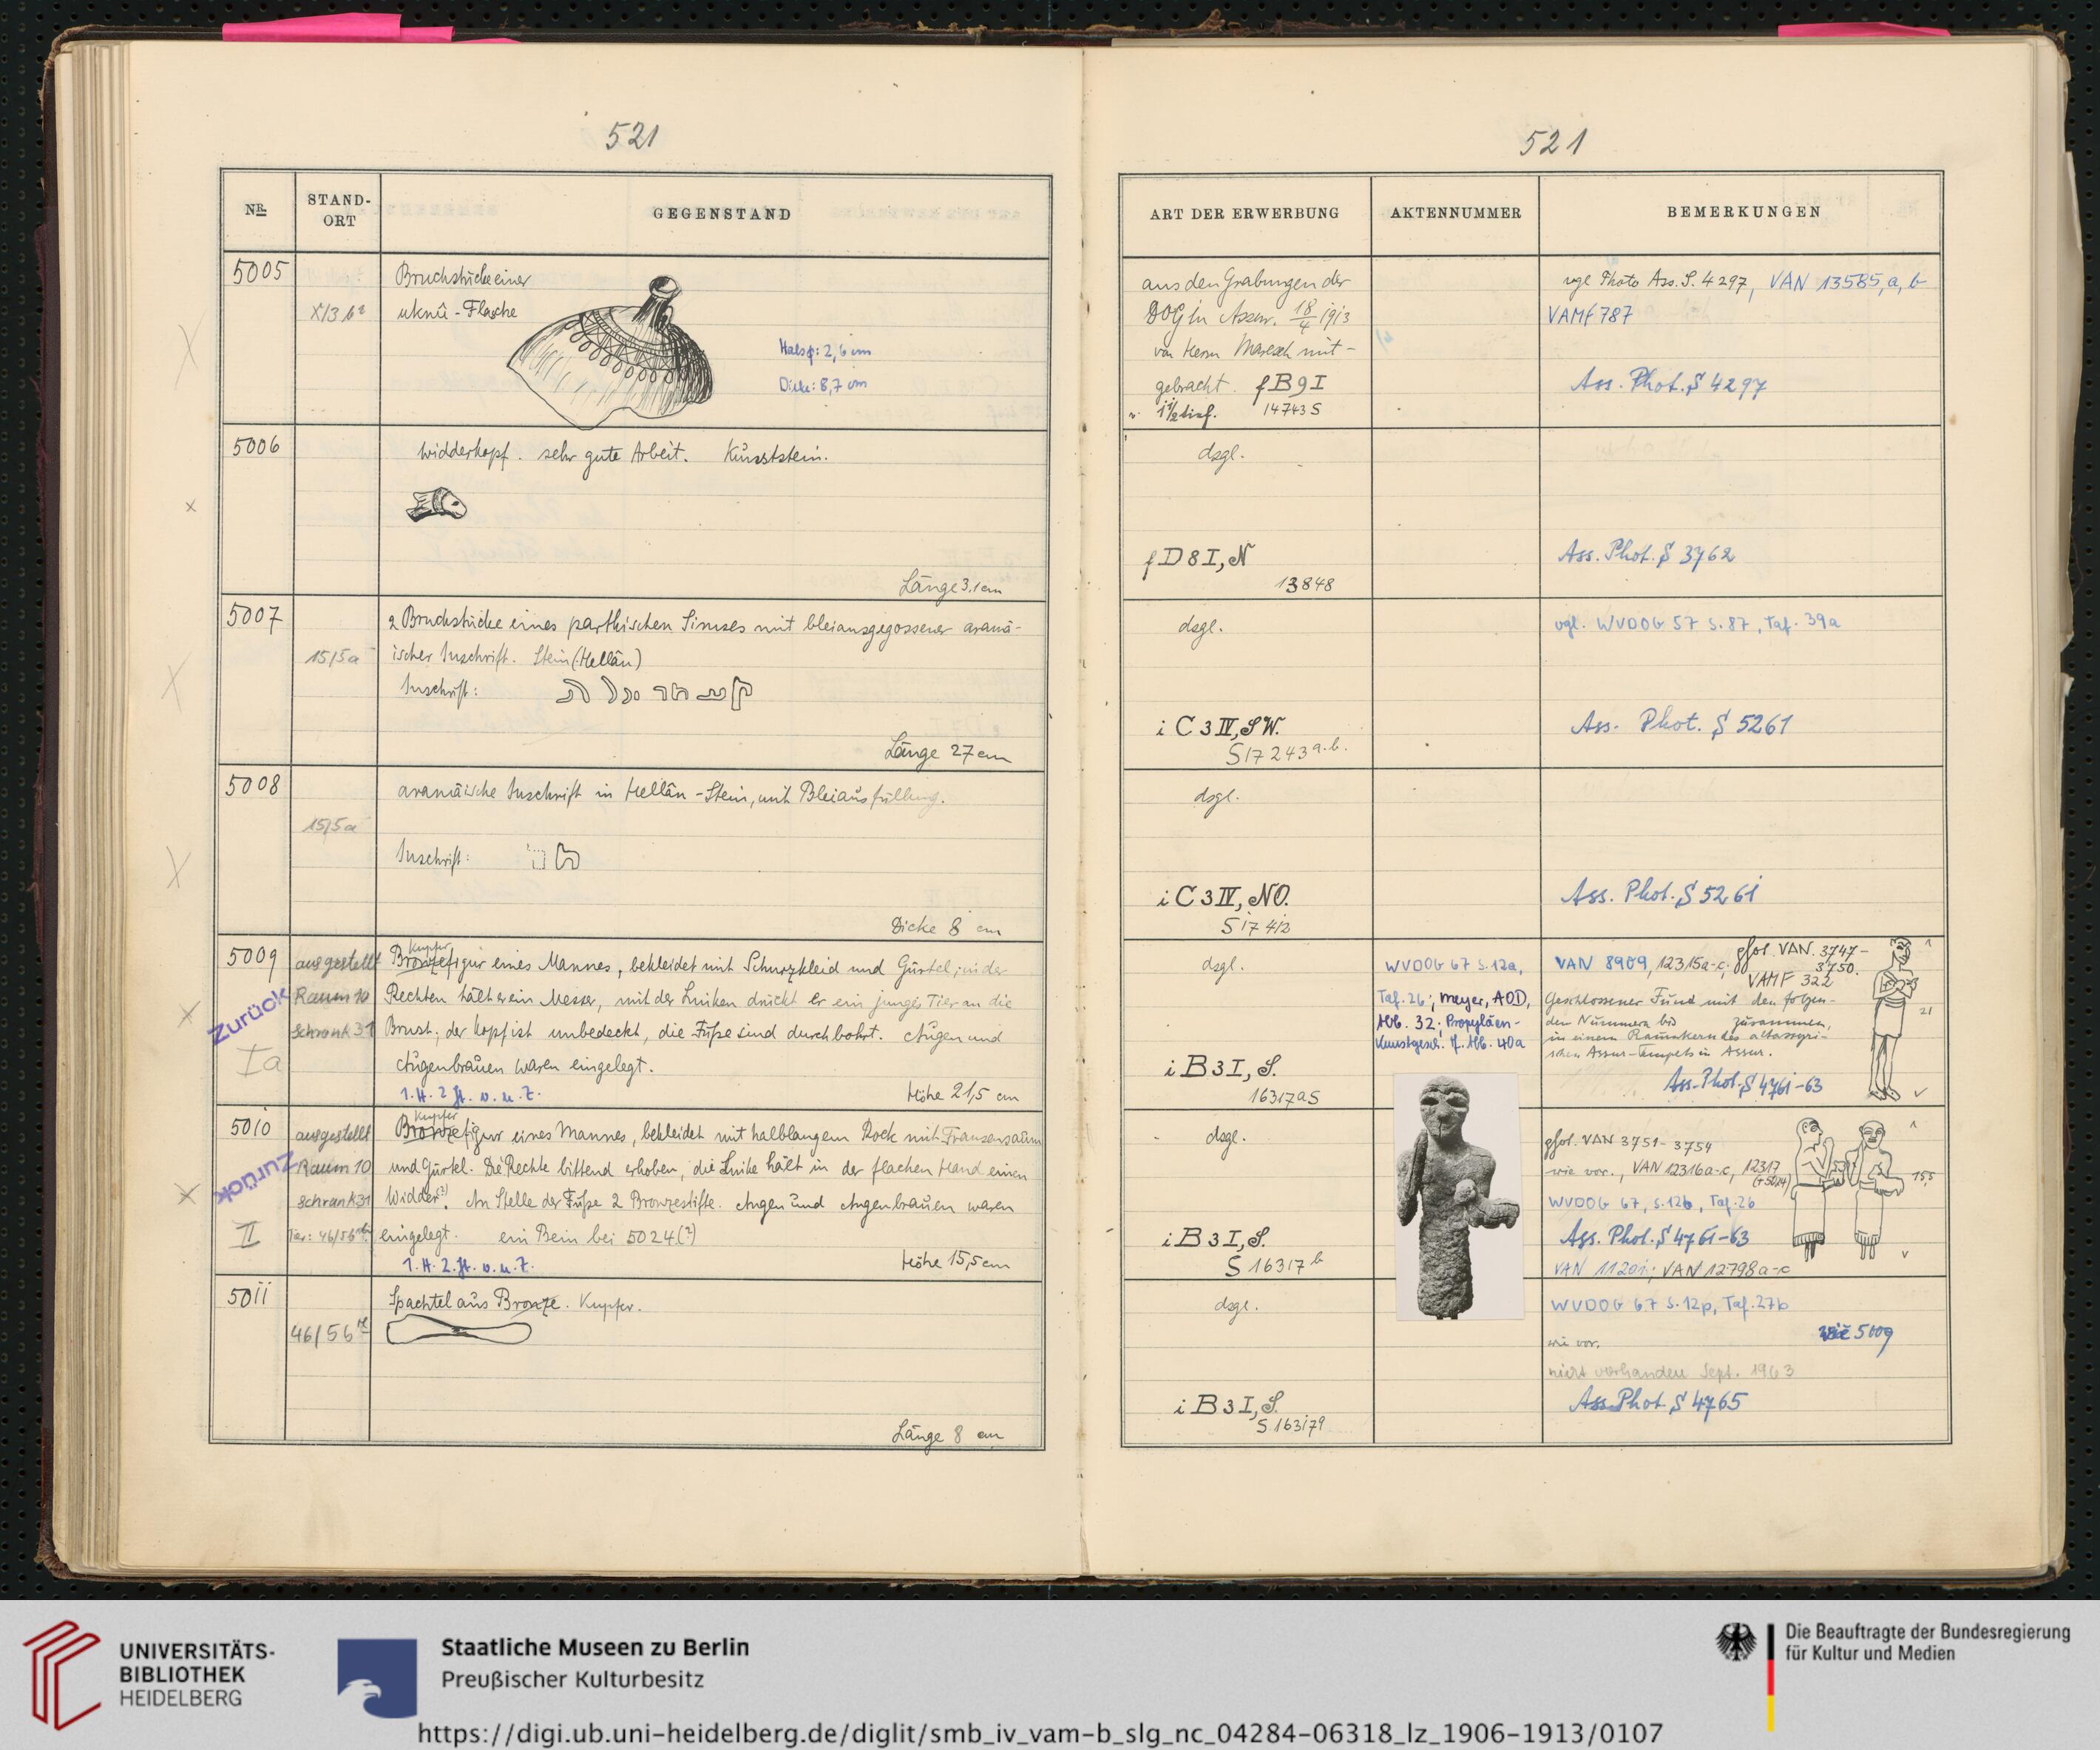 521
NR.
STAND-
ORT
GEGENSTAND
5005
Bruchstücke einer
uknû-Flasche
Halsφ: 2,6 cm
Dicke: 8,7 cm
5006
Widderkopf. sehr gute Arbeit. Kunststein.
Länge 3.1 cm
5007
15/5a
2 Bruchstücke eines parthischen Simses mit bleiausgegossener aramä-
ischer Inschrift. Stein (Hellân)
Inschrift:
Länge 27 cm
5008
15/5a
aramäische Inschrift in Hellân-Stein, mit Bleiausfüllung.
Inschrift:
Dicke 8 cm
5009
ausgestellt
Raum 10
Schrank 31
Zurück
Ia
Kupfer
Bronzefigur eines Mannes, bekleidet mit Schurzkleid und Gürtel; in der
Rechten hält er ein Messer, mit der Linken drückt er ein junges Tier an die
Brust; der Kopf ist unbedeckt, die Füße sind durchbohrt. Augen und
Augenbrauen waren eingelegt.
1. H. 2. Jt. v. u. Z.
Höhe 21,5 cm
5010
ausgestellt
Raum 10
Schrank 31
Zurück
II
Kupfer
Bronzefigur eines Mannes, bekleidet mit halblangem Rock mit Fransensaum
und Gürtel. Die Rechte bittend erhoben, die Linke hält in der flachen Hand einen
Widder(?). An Stelle der Füße 2 Bronzestifte. Augen und Augenbrauen waren
eingelegt. ein Bein bei 5024(?)
1. H. 2. Jt. v. u. Z.
Höhe 15,5 cm
5011
46/56
Spachtel aus Bronze. Kupfer.
Länge 8 cm
521
ART DER ERWERBUNG
AKTENNUMMER
BEMERKUNGEN
aus den Grabungen der
DOG in Assur. 18/4 1913
von Herrn Maresch mit-
gebracht. fB9I
14743 S
vgl Photo Ass. S. 4297, VAN 13585, a, b
VAMF 787
Ass. Phot. S 4297
dsgl.
fD8I, N
13848
Ass. Phot. S 3762
dsgl.
iC3IV, SW.
S 17243 a.b.
vgl. WVDOG 57 S. 87, Taf. 39a
Ass. Phot. S 5261
dsgl.
iC3IV, NO.
S 17412
Ass. Phot. S 5261
dsgl.
iB3I, S.
16317a S
WVDOG 67 S. 12a,
Taf. 26; Meyer, AOD,
Abb. 32; Propyläen-
Kunstgesch. Abb. 40a
VAN 8909, 12315a-c; phot. VAN. 3747-
3750.
VAMF 322
Geschlossener Fund mit den folgen-
den Nummern bis zusammen,
in einem Raumkern des altassyri-
schen Assur-Tempels in Assur.
Ass. Phot. S 4761-63
21
dsgl.
iB3I, S.
S 16317 b
phot. VAN 3751-3754
wie vor., VAN 12316a-c, 12317
(+5024)
WVDOG 67, S. 12b, Taf. 26
Ass. Phot. S 4761-63
VAN 11201; VAN 12798a-c
15,5
dsgl.
iB3I, S.
WVDOG 67 S. 12p, Taf. 27b
wie 5009
wie vor.
nicht vorhanden Sept. 1963
Ass. Phot. S 4765
UNIVERSITÄTS-
BIBLIOTHEK
HEIDELBERG
Staatliche Museen zu Berlin
Preußischer Kulturbesitz
Die Beauftragte der Bundesregierung
für Kultur und Medien
https://digi.ub.uni-heidelberg.de/diglit/smb_iv_vam-b_slg_nc_04284-06318_lz_1906-1913/0107